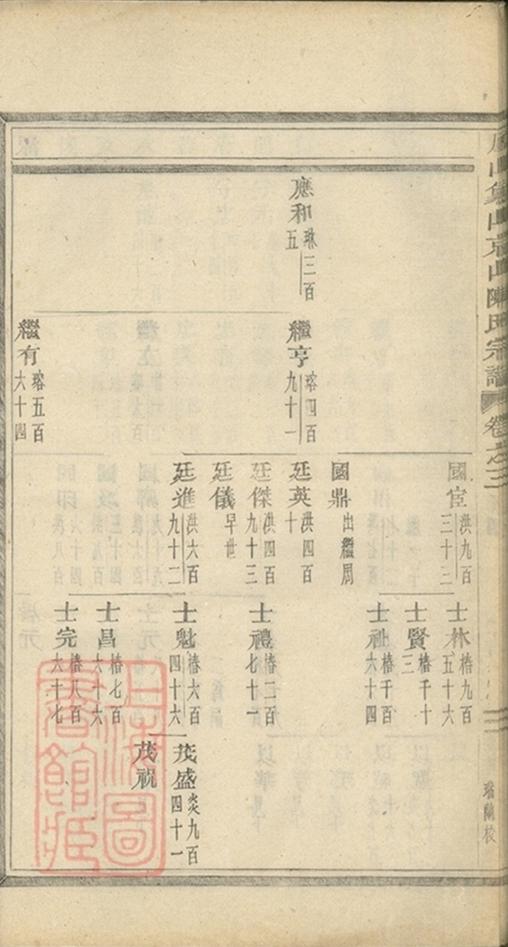 應和 琳三百五
繼亨 瑢四百九十一
繼有 瑢五百六十四
國宦 洪九百三十三
國鼎 出繼周
廷英 洪四百十
廷傑 洪四百九十三
廷儀 早世
廷進 洪六百九十二
士林 椿九百五十六
士賢 椿千十三
士祉 椿千百六十四
士禮 椿二百七十一
士魁 椿六百四十六
士昌 椿七百六十六
士完 椿八百六十七
茂盛 炎九百四十一
茂祝
山陳氏宗譜 卷之三
上海圖書館藏